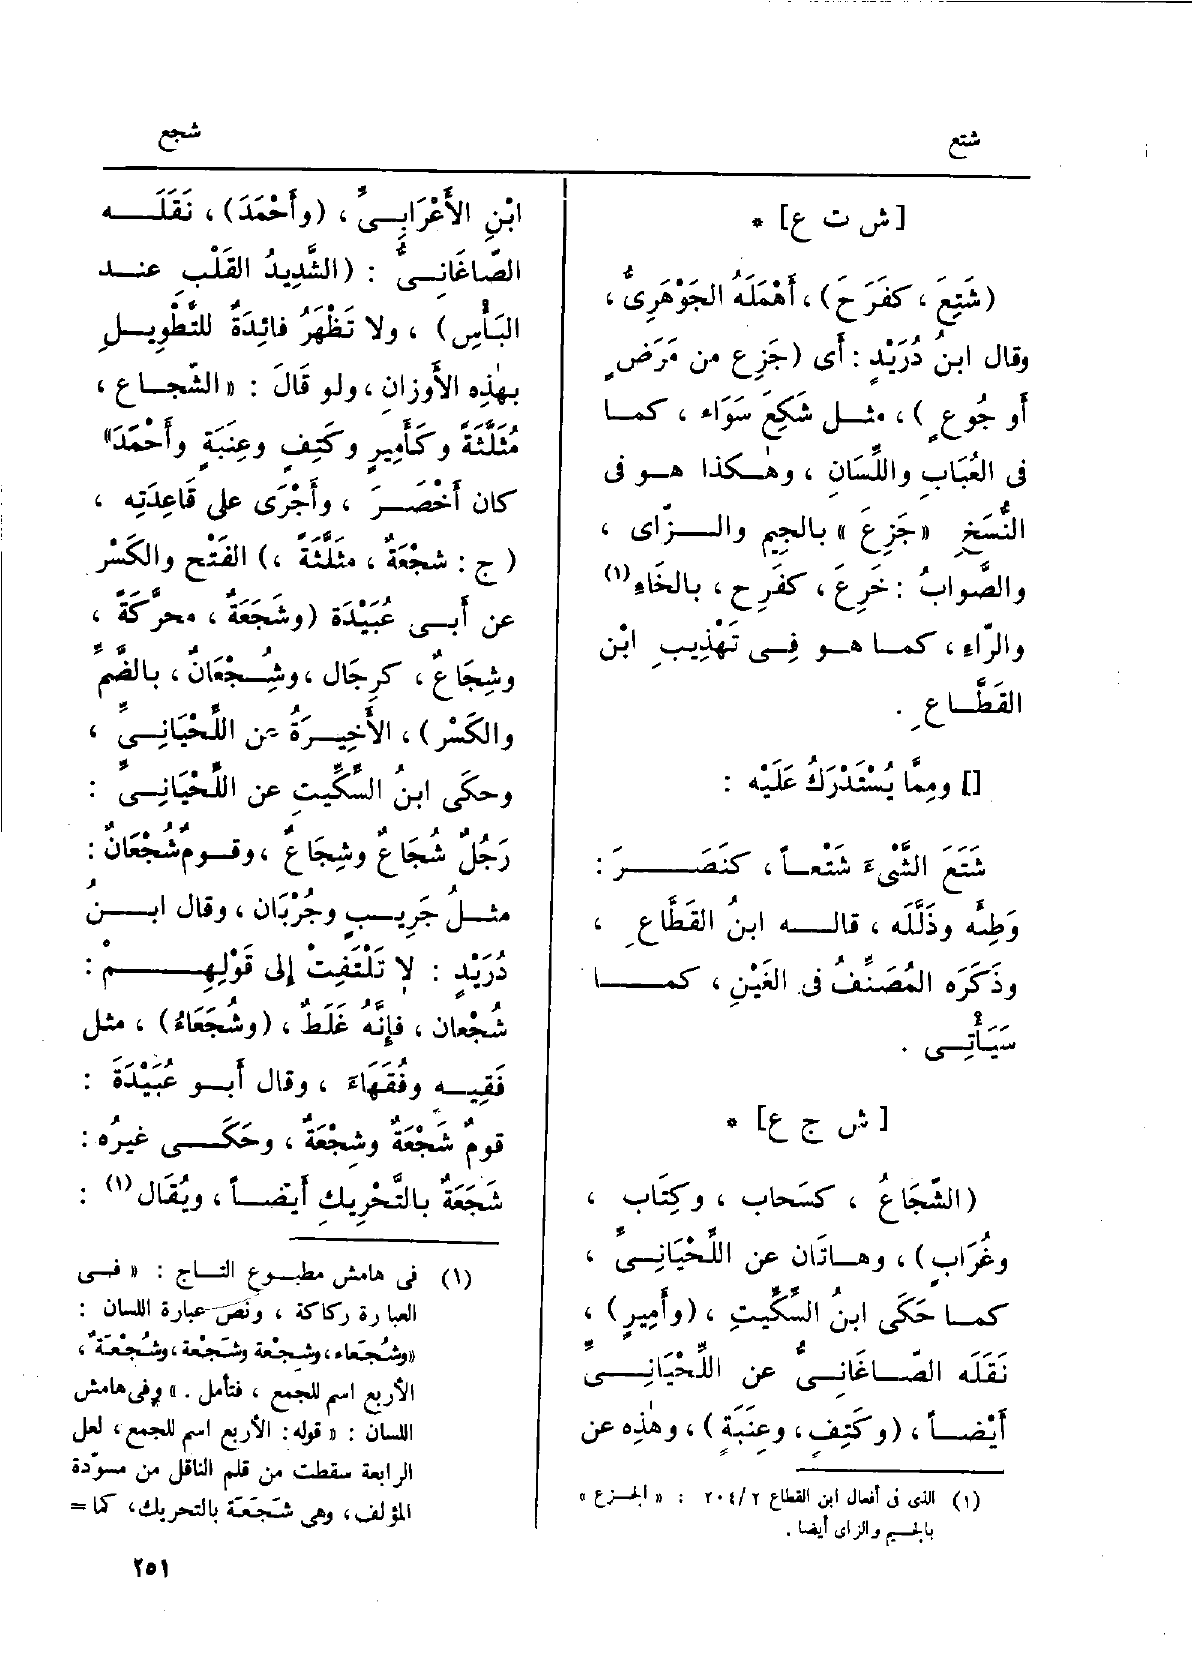 شتع
شجع
[ ش ت ع ] *
( شَتِعَ ، كفَرَحَ ) ، أَهْمَلَهُ الجَوْهَرِىُّ ،
وقال ابنُ دُرَيْدٍ : أَى ( جَزِع من مَرَضٍ
أَو جُوعٍ ) ، مثل شَكِعَ سَوَاء ، كما
فى العُبَابِ واللِّسَانِ ، وهٰكذا هو فى
النُّسَخِ « جَزِعَ » بالجِيم والزّاى ،
والصَّوابُ : خَرِعَ ، كفَرِح ، بالخَاءِ (١)
والرّاءِ ، كما هو فِى تَهْذِيبِ ابْن
القَطَّاعِ .
[] ومِمَّا يُسْتَدْرَكُ عَلَيْه :
شَتَعَ الشَّىْءَ شَتْعاً ، كنَصَرَ :
وَطِئَه وذَلَّلَه ، قاله ابنُ القَطَّاعِ ،
وذَكَرَه المُصَنِّفُ فى الغَيْنِ ، كما
سَيَأْتِى .
[ ش ج ع ] *
( الشّجَاعُ ، كسَحاب ، وكِتَاب ،
وغُرَابٍ ) ، وهاتَان عن اللِّحْيَانِىِّ ،
كما حَكَى ابنُ السِّكِّيتِ ، ( وأَمِيرٍ ) ،
نَقَلَه الصّاغَانِىُّ عن اللِّحْيَانِىِّ
أَيْضاً ، ( وكَتِفٍ ، وعِنَبَةٍ ) ، وهٰذِه عن
(١) الذى فى أفعال ابن القطاع ٢/ ٢٠٤ : « الجزع »
بالجيم والزاى أيضا .
ابْنِ الأَعْرَابِىِّ ، ( وأَحْمَدَ ) ، نَقَلَه
الصّاغَانِىُّ : ( الشَّدِيدُ القَلْبِ عند
البَأْسِ ) ، ولا تَظْهَرُ فائِدَةٌ للتَّطْوِيلِ
بهٰذِه الأَوزانِ ، ولو قَالَ : « الشّجاع ،
مُثَلَّثَةً وكَأَمِيرٍ وكَتِفٍ وعِنَبَةٍ وأَحْمَدَ»
كان أَخْصَرَ ، وأَجْرَى على قَاعِدَتِه ،
( ج : شجْعَةٌ ، مثَلَّثَةً ، ) الفَتْح والكَسْر
عن أَبِى عُبَيْدَة ( وشَجَعَةٌ ، محرَّكَةً ،
وشِجَاعٌ ، كرِجَال ، وشُِجْعَانٌ ، بالضَّمِّ
والكَسْر ) ، الأَخِيرَةُ عن اللِّحْيَانِىِّ ،
وحكَى ابنُ السِّكِّيتِ عن اللِّحْيَانِىِّ :
رَجُلٌ شُجَاعٌ وشِجَاعٌ ، وقومٌ شُجْعَانٌ :
مثلُ جَرِيبٍ وجُرْبَان ، وقال ابنُ
دُرَيْدٍ : لا تَلْتَفِتْ إلى قَوْلِهِمْ :
شُجْعان ، فإِنَّهُ غَلَطٌ ، ( وشُجَعَاءُ ) ، مثل
فَقِيه وفُقَهَاءَ ، وقال أَبو عُبَيْدَةَ :
قومٌ شَجْعَةٌ وشِجْعَةٌ ، وحَكَى غيرُه :
شَجَعَةٌ بالتَّحْرِيكِ أَيْضاً ، ويُقَال (١) :
(١) فى هامش مطبوع التاج : « فى
العبارة ركاكة ، ونص عبارة اللسان :
«وشُجَعاء، وشِجْعة وشَجْعة، وشُجْعَةٌ ،
الأربع اسم للجمع ، فتأمل . » وفى هامش
اللسان : « قوله : الأربع اسم للجمع ، لعل
الرابعة سقطت من قلم الناقل من مسوّدة
المؤلف، وهى شَجَعَة بالتحريك، كما =
٢٥١